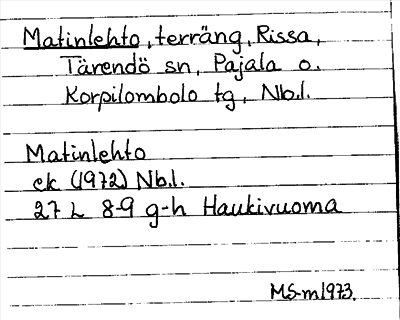 Matinlehto, terräng, Rissa,
Tärendö sn, Pajala o.
Korpilombolo tg, Nb.l.
Matinlehto
ek (1972) Nb.l.
27 L 8-9 g-h Haukivuoma
MS-m 1973.